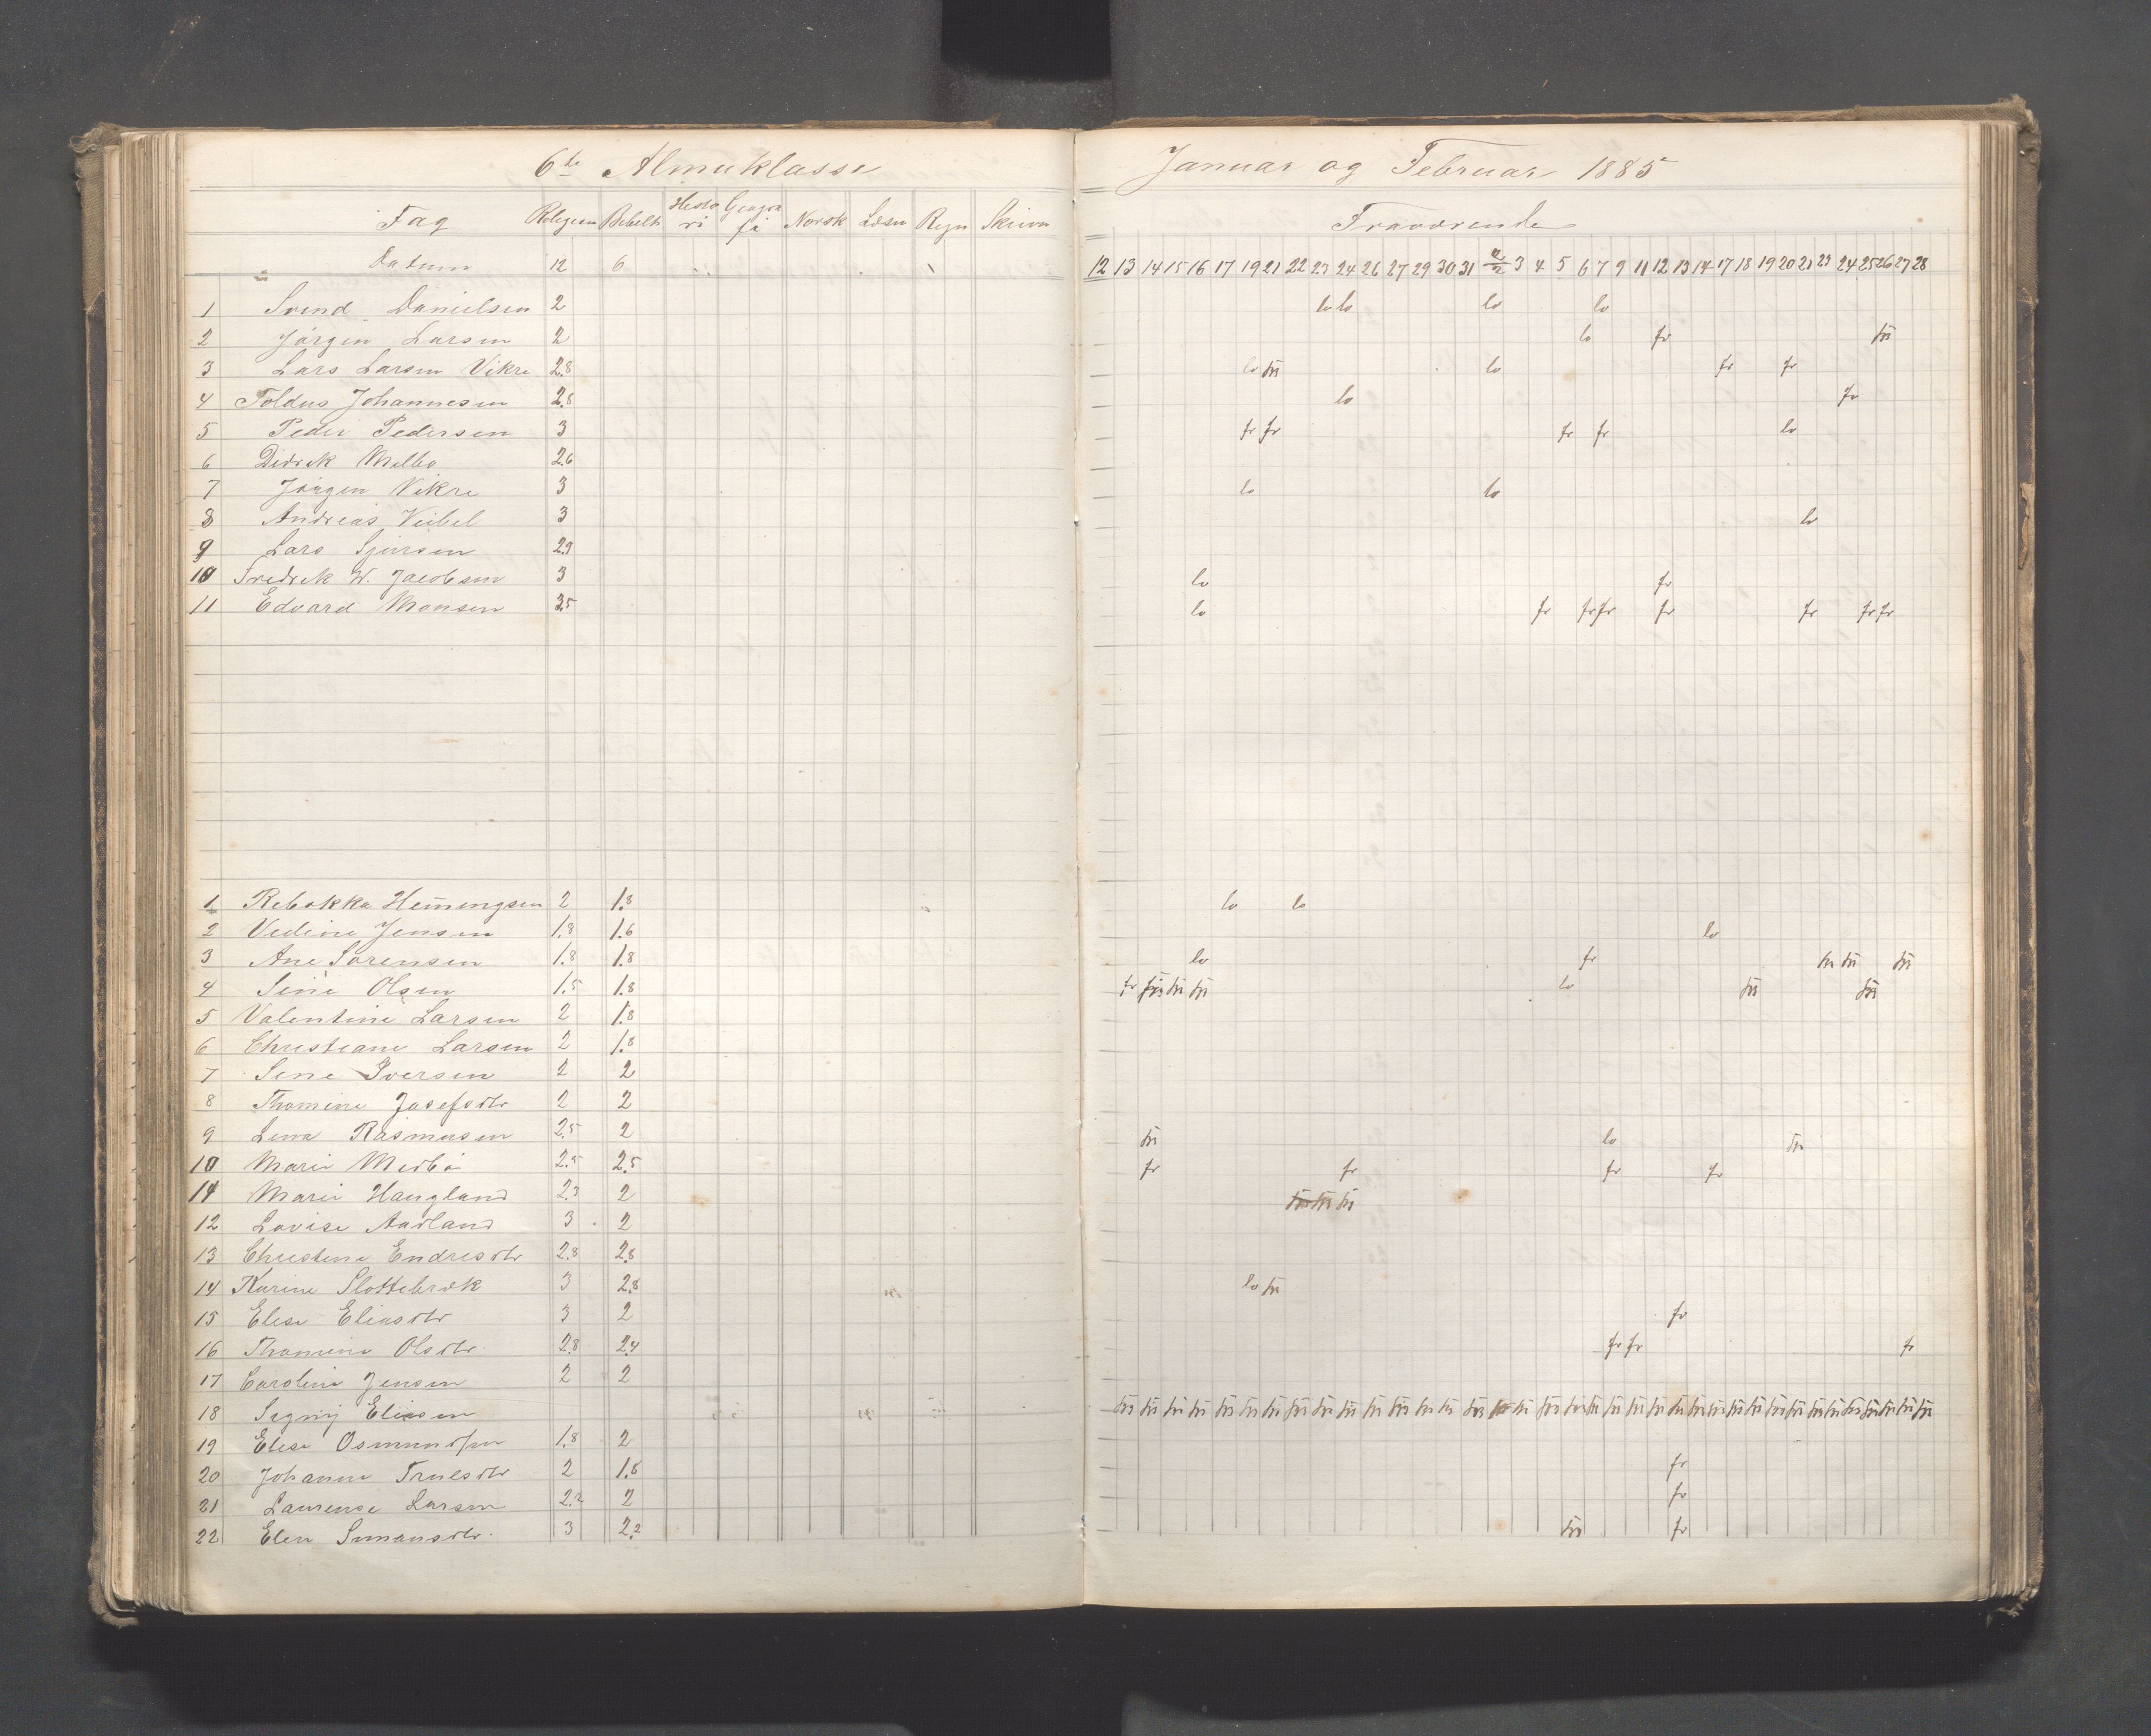 6te Almuklasse
Fag Religion Bibelh Histo ri Geogra fi Norsk Læsn Regn Skrivn
Datum 12 6
1 Svend Danielsen 2
2 Jørgen Larsen 2
3 Lars Larsen Vikre 2.8
4 Toldus Johannesen 2.8
5 Peder Pedersen 3
6 Didrik Melbo 2.6
7 Jørgen Vikre 3
8 Andreas Veibel 3
9 Lars Sjursen 2.9
10 Fredrik W. Jacobsen 3
11 Edvard Monsen 3.5
1 Rebekka Hemingsen 2 1.8
2 Vedine Jensen 1.8 1.6
3 Ane Sørensen 1.8 1.8
4 Sine Olsen 1.5 1.8
5 Valentine Larsen 2 1.8
6 Christiane Larsen 2 1.8
7 Sene Iversen 2 2
8 Thomine Josefsdtr 2 2
9 Lina Rasmusen 2.5 2
10 Marie Medbø 2.5 2.5
11 Marie Haugland 2.3 2
12 Lovise Aadland 3 2
13 Christine Endresdtr 2.8 2.8
14 Karine Slottebrøk 3 2.8
15 Elise Eliasdtr 3 2
16 Thomine Olsdtr. 2.8 2.4
17 Caroline Jensen 2 2
18 Signij Eliasen
19 Elise Osmundsen 1.8 2
20 Johanne Truesdtr 2 1.8
21 Laurense Larsen 2.2 2
22 Elen Simonsdtr. 3 2.2
Januar og Februar 1885
Fraværende
12 13 14 15 16 17 19 21 22 23 24 26 27 29 30 31 2/2 3 4 5 6 7 9 11 12 13 14 17 18 19 20 21 23 24 25 26 27 28
lo lo lo lo
lo fr
lo lo fr fr
lo fr
fr fr fr fr lo
lo lo
lo
lo fr
lo fr fr fr fr fr fr fr
lo lo
lo
lo fr
fr lo
lo
fr fr fr fr
lo
fr
fr fr fr
fr
fr
fr